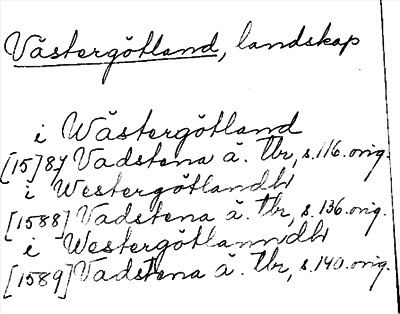 Västergötland, landskap
i Wästergötland
[15]87 Vadstena ä. Tbr, s. 116. orig.
i Westergötlandh
[1588] Vadstena ä. Tbr, s. 136. orig.
i Westergötlanndh
[1589] Vadstena ä. Tbr, s. 140. orig.